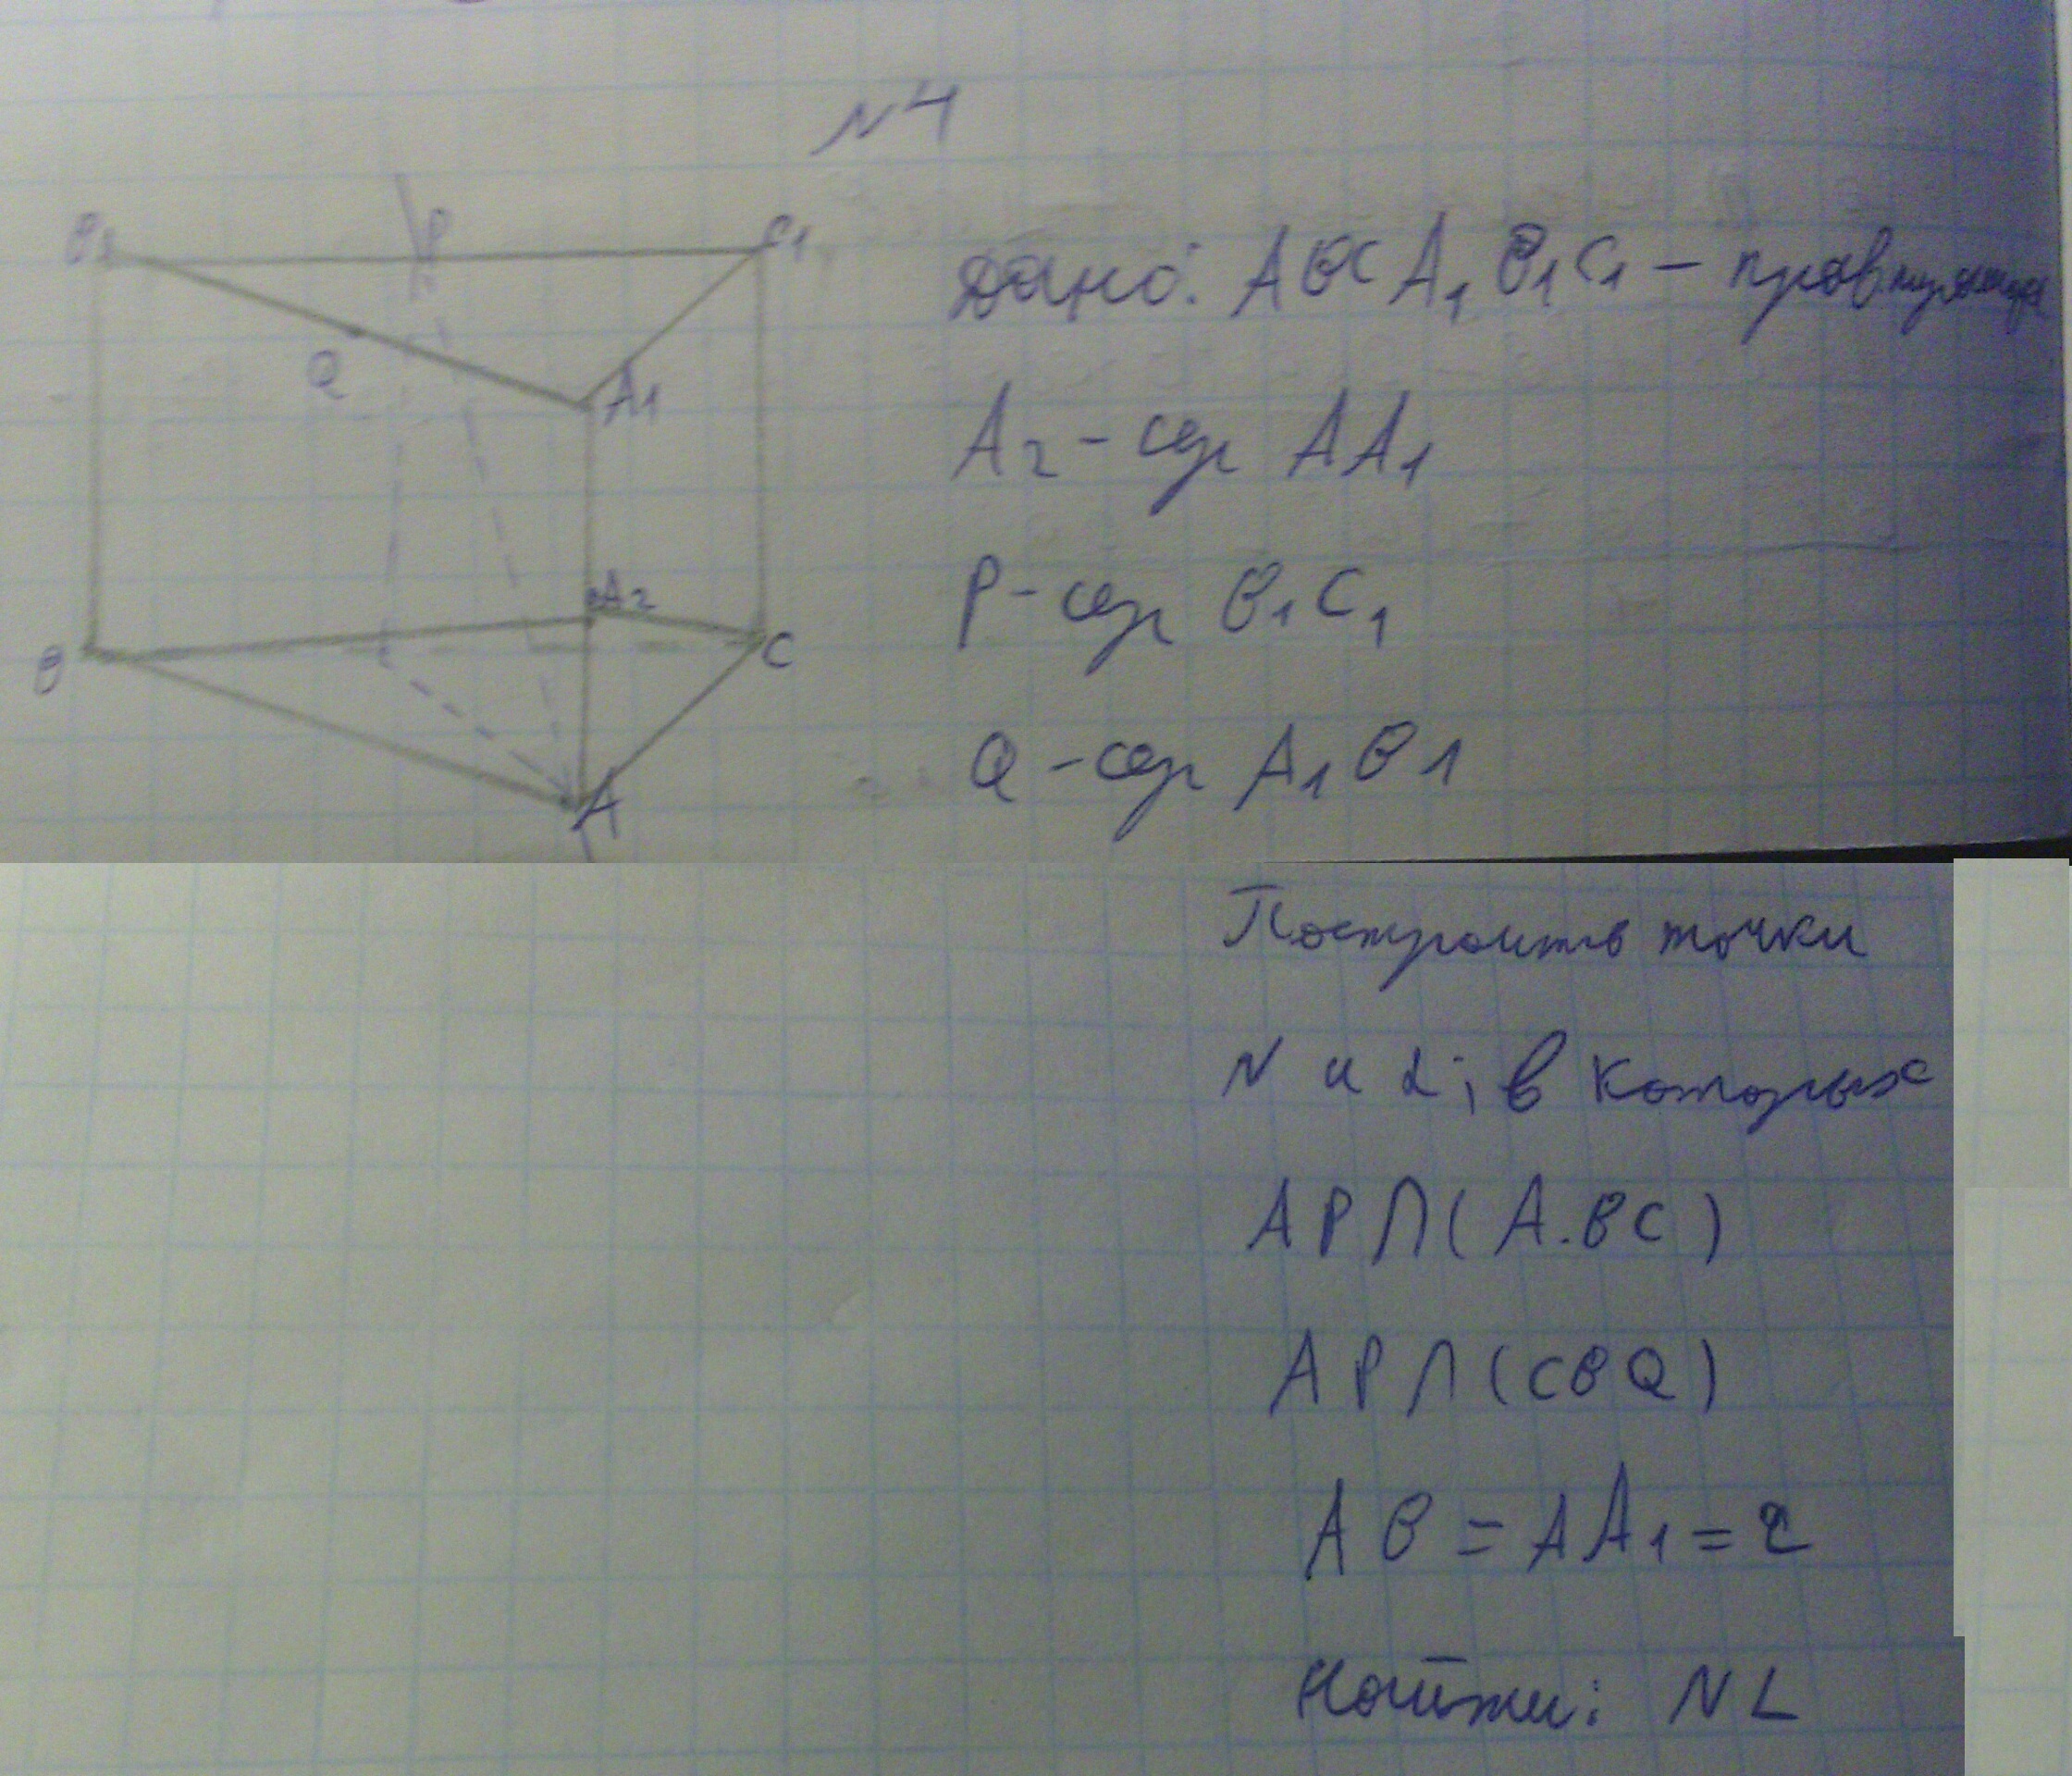 N4
B1
P
C1
Q
A1
A2
B
C
A
Дано: ABCA1B1C1 –
A2 – сер AA1
P – сер B1C1
Q – сер A1B1
Построить точки
N и L, в которых
AP∩(A.BC)
AP∩(CBQ)
AB=AA1=2
Найти: NL